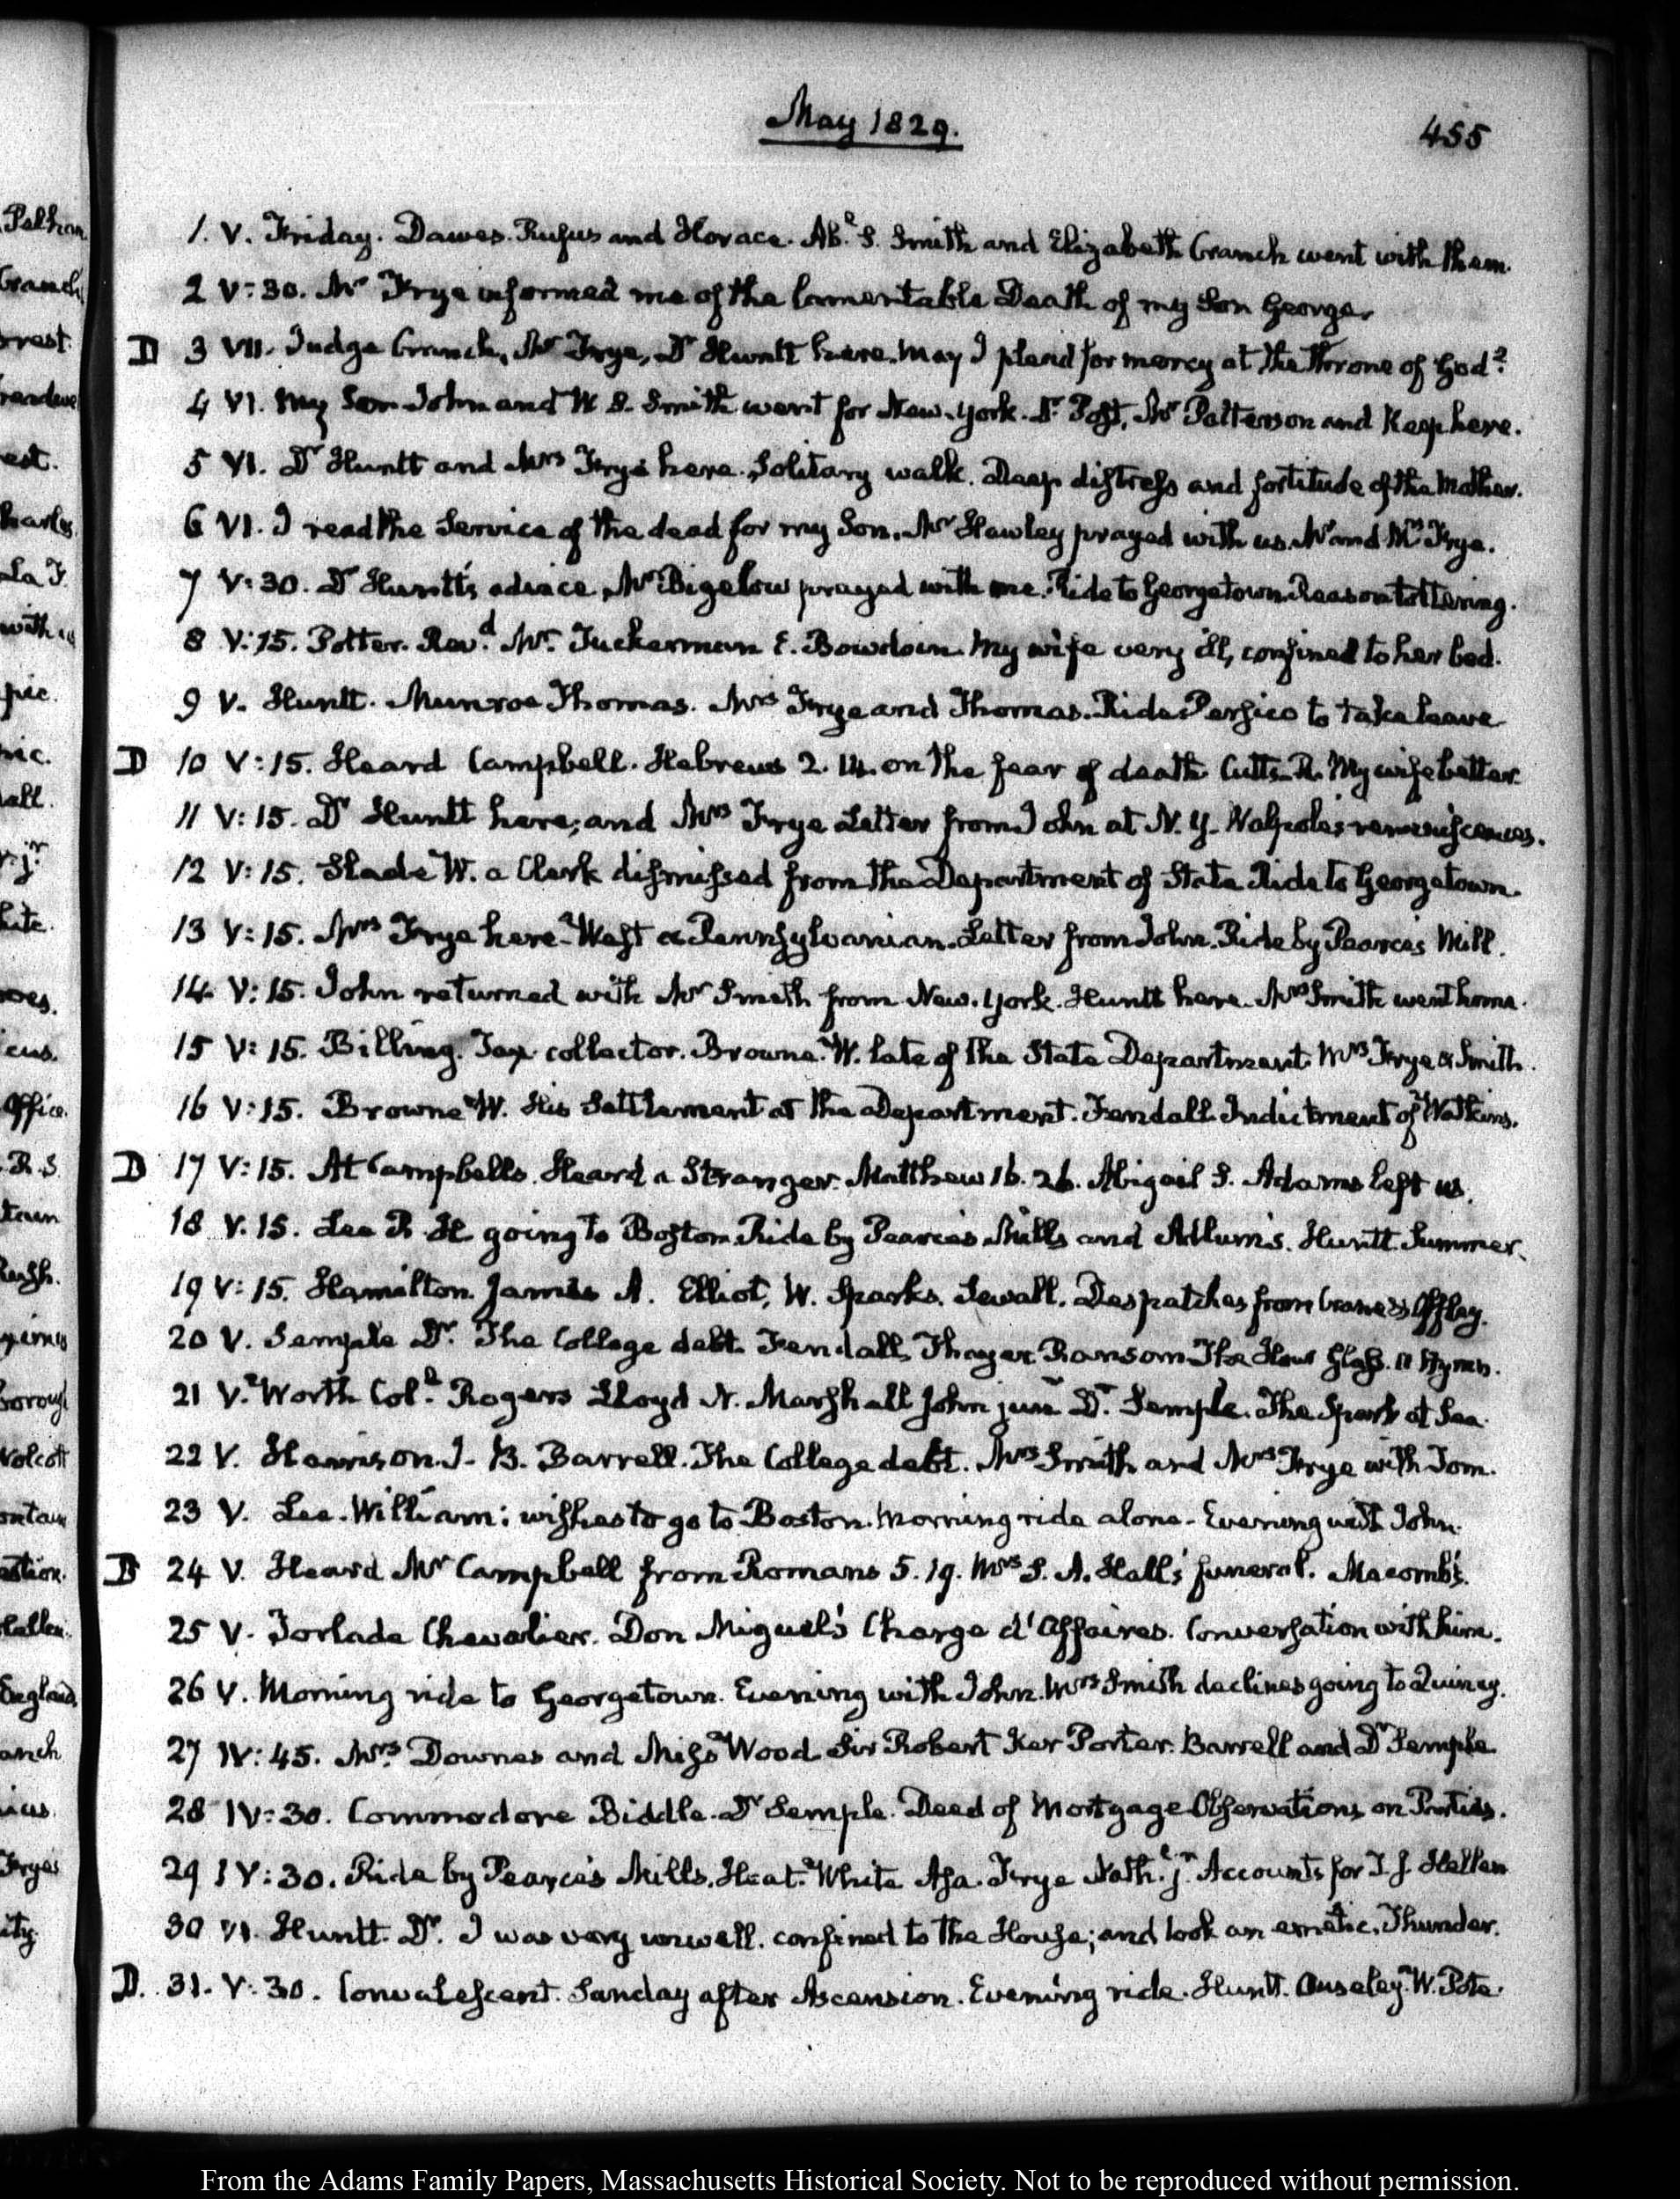 May 1829.
455
1. V. Friday. Dawes. Rufus and Horace. Ab.l S. Smith and Elizabeth Cranch went with them.
2 V:30. Mr Frye informed me of the lamentable Death of my Son George.
D 3 VII. Judge Cranch, Mr Frye, Dr Huntt here. May I plead for mercy at the throne of God?
4 VI. My Son John and W. S. Smith went for New-York. Dr Post, Mr Patterson and Keep here.
5 VI. Dr Huntt and Mrs Frye here. Solitary walk. Deep distress and fortitude of the Mother.
6 VI. I read the Service of the dead for my Son. Mr Hawley prayed with us. Mr and Mrs Frye.
7 V:30. Dr Huntt's advice. Mr Bigelow prayed with me. Ride to Georgetown. Reason tottering.
8 V:15. Potter. Revd. Mr. Tuckerman E. Bowdoin. My wife very ill, confined to her bed.
9 V. Huntt. Munroe Thomas. Mrs Frye and Thomas. Ride Persico to take leave
D 10 V:15. Heard Campbell. Hebrews 2. 14. on the fear of death. Cutts-R. My wife better.
11 V:15. Dr Huntt here; and Mrs Frye Letter from John at N. Y. Walpole's reminiscences.
12 V:15. Slade W. a Clerk dismissed from the Department of State Ride to Georgetown.
13 V:15. Mrs Frye here. West a Pennsylvanian. Letter from John. Ride by Pearce's Mill.
14 V:15. John returned with Mr Smith from New-York. Huntt here. Mrs Smith went home.
15 V:15. Billing. Tax collector. Browne W. late of the State Department. Mrs Frye & Smith.
16 V:15. Browne W. His Settlement at the Department. Fendall. Indictment of Watkins.
D 17 V:15. At Campbells. Heard a Stranger. Matthew 16. 26. Abigail S. Adams left us.
18 V.15. Lee R. H. going to Boston. Ride by Pearce's Mills and Adlum's. Huntt. Summer.
19 V:15. Hamilton. James A. Elliot, W. Sparks. Sewall. Despatches from Offley.
20 V. Semple Dr. The College debt. Fendall, Thayer. Ransom The Hour Glass. a Hymn.
21 V. Worth Col.l Rogers Lloyd N. Marshall John junr Dr. Semple. The Spark at Sea.
22 V. Harrison. J. B. Barrell. The College debt. Mrs Smith and Mrs Frye with Tom.
23 V. Lee. William: wishes to go to Boston. Morning ride alone. Evening with John.
D 24 V. Heard Mr Campbell from Romans 5. 19. Mrs S. A. Hall's funeral. Macomb's.
25 V. Torlade Chevalier. Don Miguel's Charge d'Affaires. Conversation with him.
26 V. Morning ride to Georgetown. Evening with John. Mrs Smith declines going to Quincy.
27 IV:45. Mrs. Downes and Miss Wood Sir Robert Ker Porter. Barrell and Dr Semple
28 IV:30. Commodore Biddle. Dr Semple. Deed of Mortgage Observations on Parties.
29 IV:30. Ride by Pearce's Mills. Heat. White Asa. Frye Nathl jr. Accounts for J. J. Hellen
30 VI. Huntt. Dr. I was very unwell. confined to the House; and took an emetic. Thunder.
D. 31. V:30. Convalescent. Sunday after Ascension. Evening ride. Huntt. Ouseley. W. Pote.
From the Adams Family Papers, Massachusetts Historical Society. Not to be reproduced without permission.